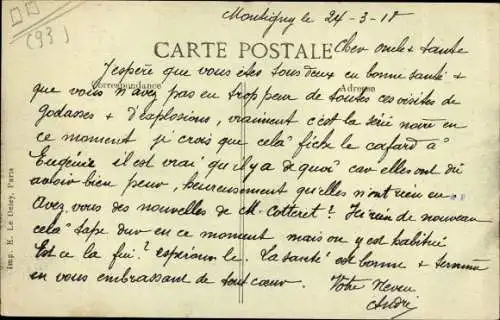 (93)
Montigny le 24-3-18
CARTE POSTALE
Cher oncle + tante
J'espère que vous êtes tous deux en bonne santé +
Correspondance
Adresse
que vous n'avez pas eu trop peur de toutes ces visites de
Godasses + d'explosions, vraiment c'est la série noire en
ce moment je crois que cela fiche le cafard à
Eugénie il est vrai qu'il y a de quoi car elles ont dû
avoir bien peur, heureusement qu'elles n'ont rien eu
Avez vous des nouvelles de M. Cotteret? Ici rien de nouveau
cela tape dur en ce moment mais on y est habitué
Est ce la fin? espérons le. La santé est bonne + termine
en vous embrassant de tout cœur.
Votre Neveu
André
Imp. H. Le Deley, Paris